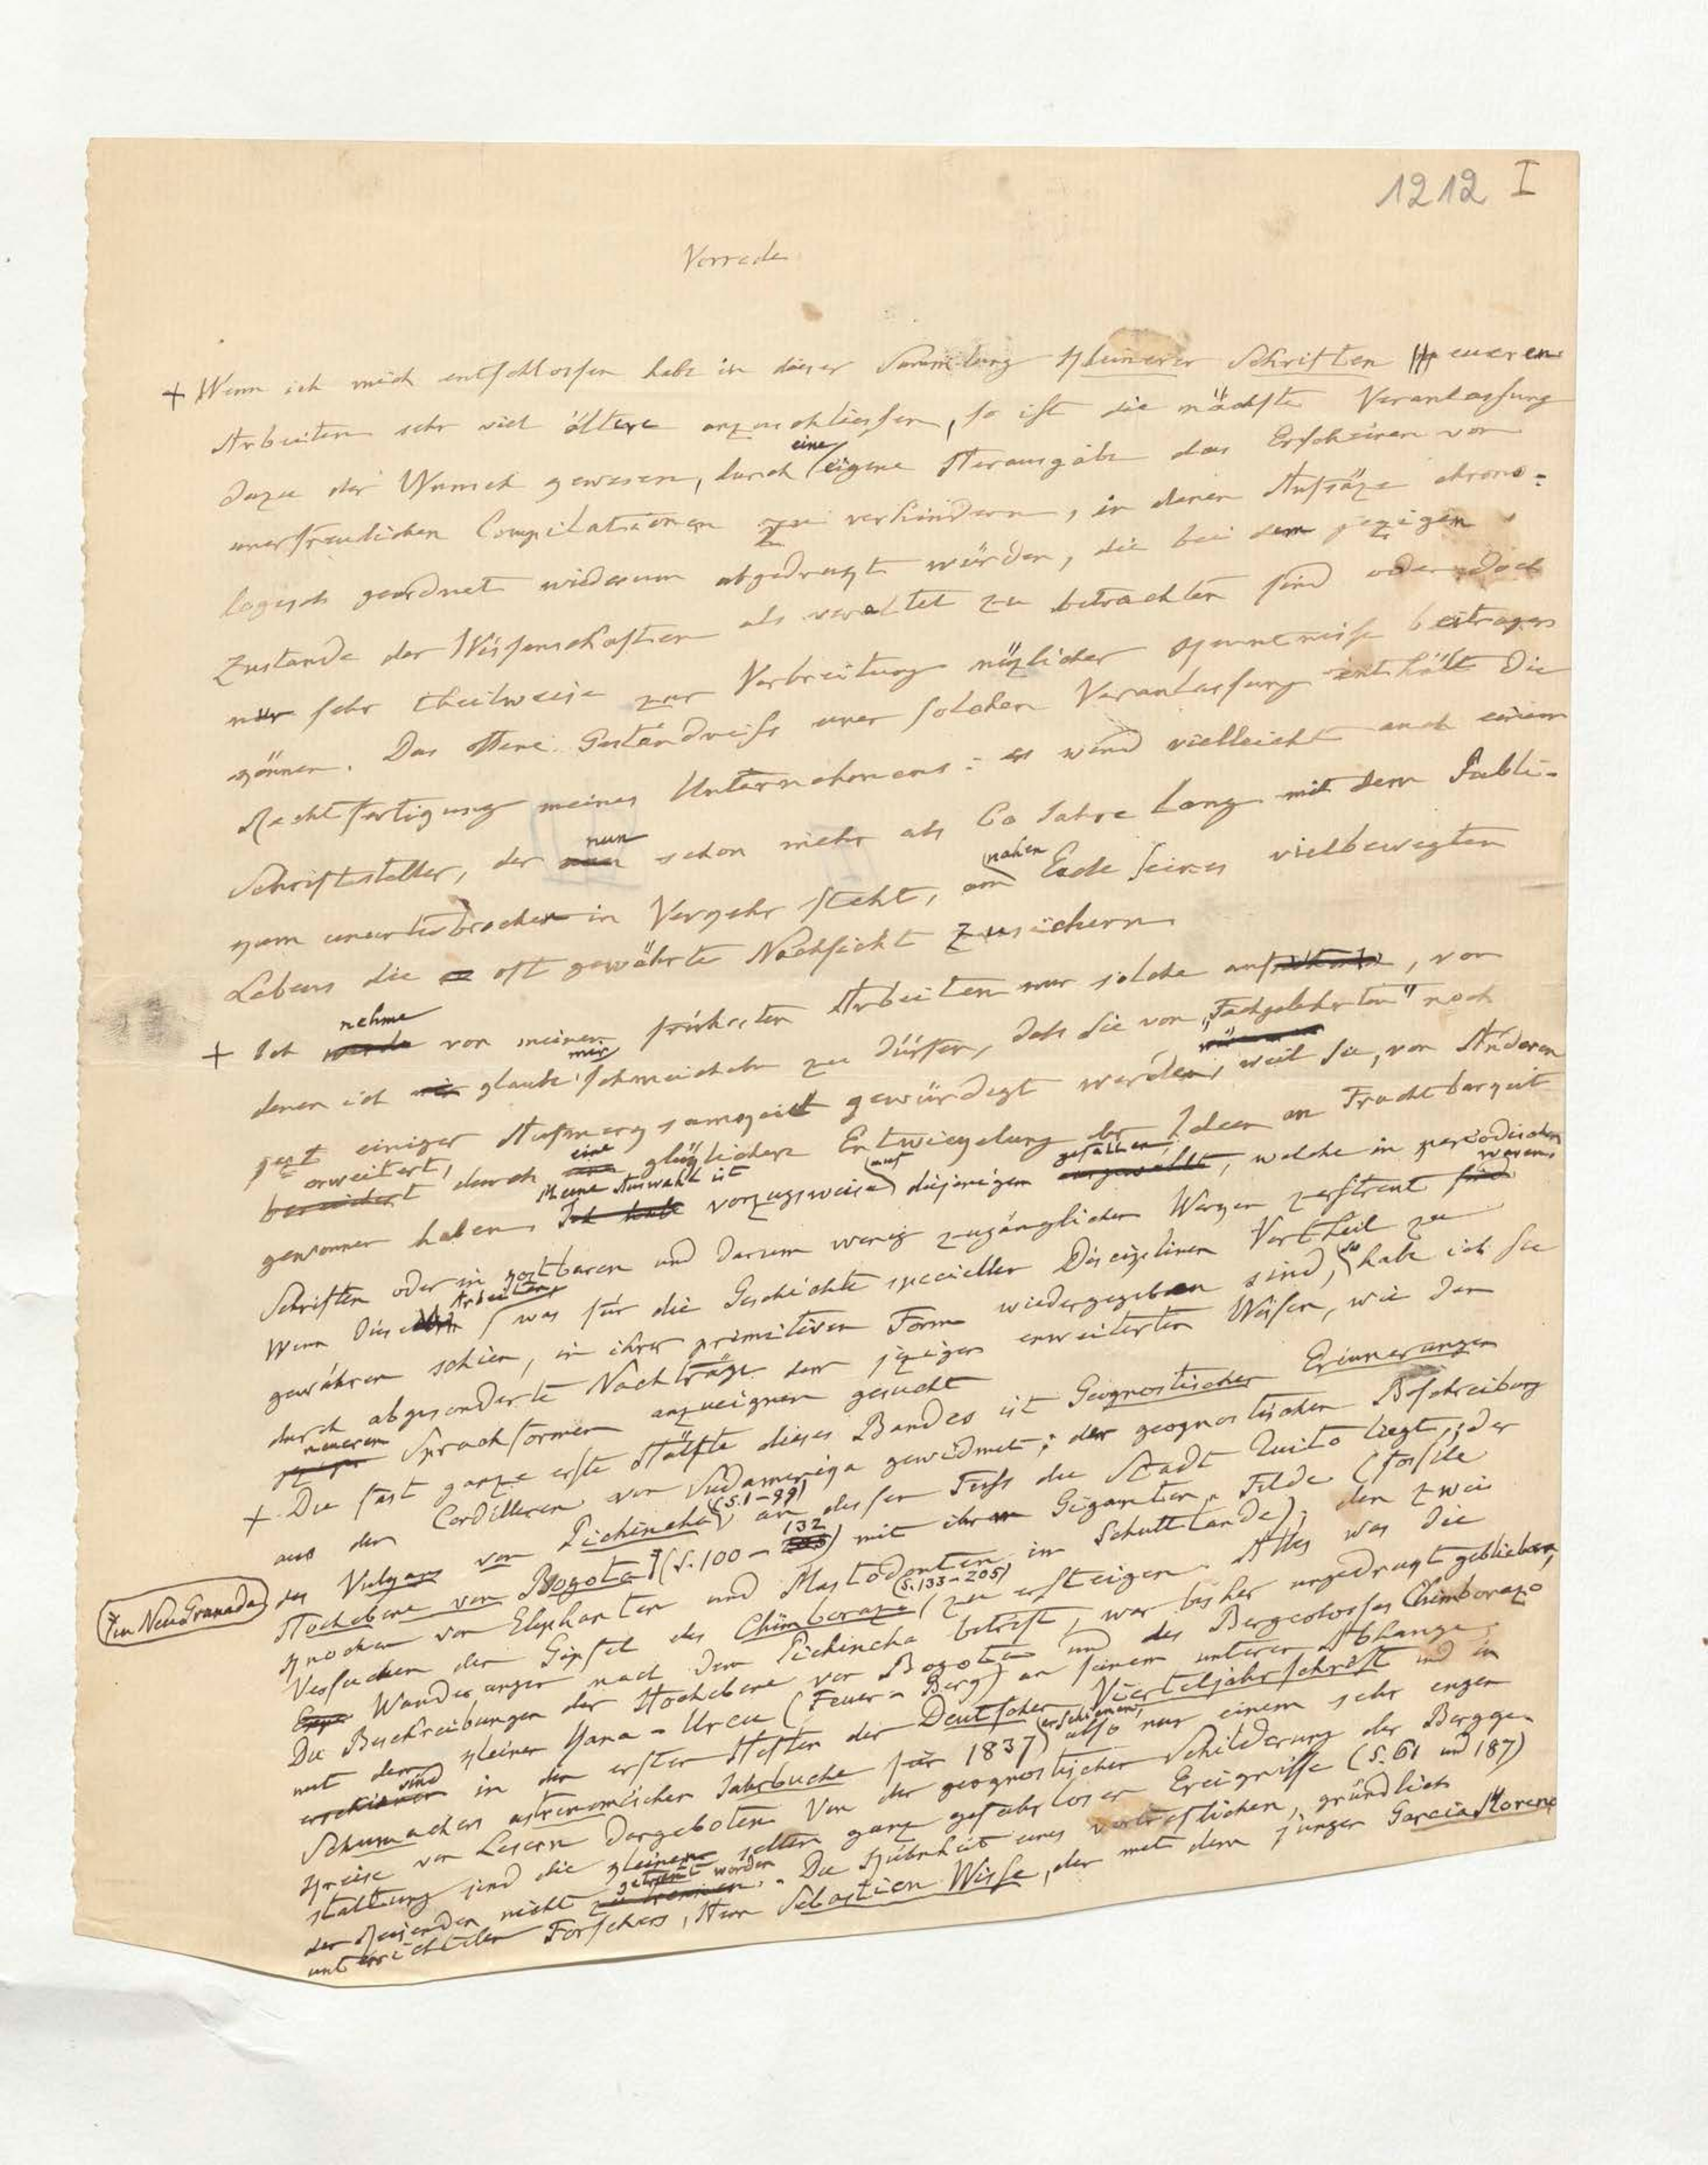 1212 I
Vorrede
+ Wenn ich mich entschlossen habe in dieser Sammlung kleinerer Schriften neueren
Arbeiten sehr viel ältere anzuschliessen, so ist die nächste Veranlassung
dazu der Wunsch gewesen, durch eine eigene Herausgabe das Erscheinen von
unerfreulichen Compilationen zu verhindern, in denen Aufsäze chrono-
logisch geordnet wiederum abgedrukt würden, die bei dem jezigen
Zustande der Wissenschaften als veraltet zu betrachten sind oder doch
nur sehr theilweise zur Verbreitung nüzlicher Kenntnisse beitragen
können. Das offene Geständniss einer solchen Veranlassung enthält die
Rechtfertigung meines Unternehmens: es wird vielleicht auch einem
Schriftsteller, der nun schon mehr als 60 Jahre lang mit dem Publi-
kum ununterbrochen in Verkehr steht, am nahen Ende seines vielbewegten
Lebens die oft gewährte Nachsicht zusichern
+ Ich nehme von meinen frühesten Arbeiten nur solche auf, von
denen ich glaube mir schmeicheln zu dürfen, dass sie von „Fachgelehrten" noch
jezt einiger Aufmerksamkeit gewürdigt werden, weil sie, von Anderen
erweitert, durch eine glüklichere Entwikelung der Ideen an Fruchtbarkeit
gewonnen haben. Meine Auswahl ist vorzugsweise auf diejenigen gefallen, welche in periodischen
Schriften oder in kostbaren und darum wenig zugänglichen Werken zerstreut waren.
Wenn diese Arbeiten, was für die Geschichte specieller Disciplinen Vortheil zu
gewähren schien, in ihrer primitiven Form wiedergegeben sind, so habe ich sie
durch abgesonderte Nachträge dem jezigen erweiterten Wissen, wie den
neueren Sprachformen anzueignen gesucht
+ Die fast ganze erste Hälfte dieses Bandes ist Geognostischen Erinnerungen
aus den Cordilleren von Südamerika gewidmet; der geognostischen Beschreibung
des Vulkans von Pichincha (S. 1–99) an dessen Fuss die Stadt Quito liegt; der
Hochebene von Bogota * (S. 100 – 132) mit ihrem Giganten-Felde (fossile
* in Neu Granada
Knochen von Elephanten und Mastodonten im Schuttlande); den zwei
Versuchen den Gipfel des Chimborazo (S. 133–205) zu ersteigen. Alles was die
Wanderungen nach dem Pichincha betrift, war bisher ungedrukt geblieben,
Die Beschreibungen der Hochebene von Bogota und des Bergcolosses Chimborazo
mit dem kleinen Yana-Urcu (Feuer-Berg) an seinem unteren Abhange
sind in den ersten Heften der Deutschen Vierteljahrsschrift und in
Schumachers astronomischem Jahrbuche für 1837 erschienen, also nur einem sehr engen
Kreise von Lesern dargeboten Von der geognostischen Schilderung der Bergge-
staltung sind die kleinen selten ganz gefahrlosen Ereignisse (S. 61 und 187)
der Reisenden nicht getrent worden. Die Kühnheit eines vortreflichen, gründlich
unterrichteten Forschers, Herrn Sebastien Wisse, der mit dem jungen Garcia Moreno